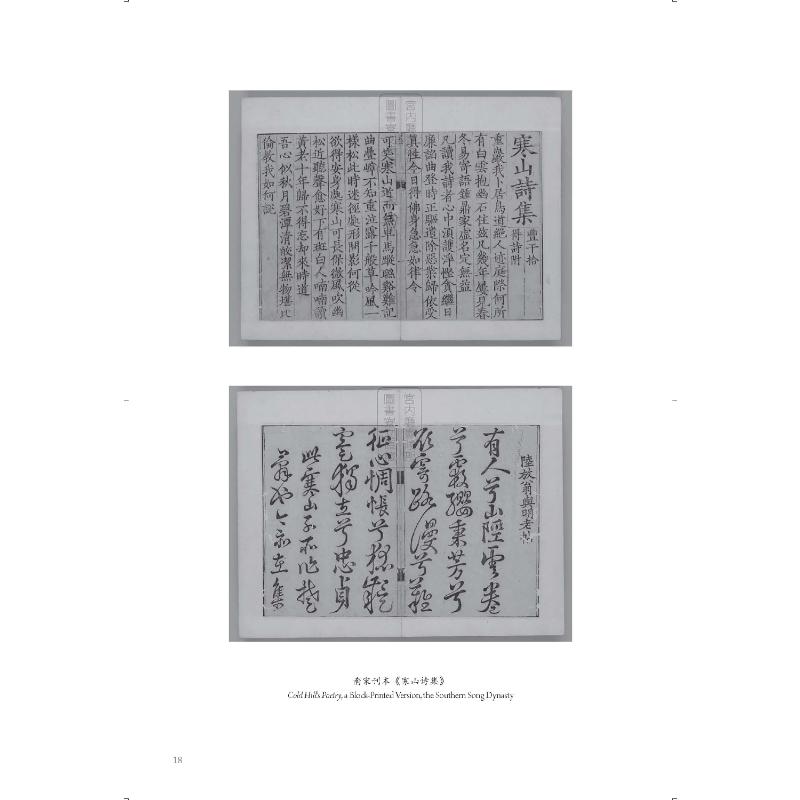 寒山詩集
豐干拾
得詩附
重巖我卜居鳥道絕人迹庭際何所
有白雲抱幽石住茲凡幾年屢見春
冬易寄語鐘鼎家虛名定無益
凡讀我詩者心中須護淨慳貪繼日
廉諂曲登時正驅遣除惡業歸依受
真性今日得佛身急急如律令
可笑寒山道而無車馬蹤聯谿難記
曲疊嶂不知重泣露千般草吟風一
樣松此時迷徑處形問影何從
欲得安身處寒山可長保微風吹幽
松近聽聲愈好下有斑白人喃喃讀
黃老十年歸不得忘却來時道
吾心似秋月碧潭清皎潔無物堪比
倫教我如何說
宮内廳
圖書寮
陸放翁與明老帖
有人兮山陘雲卷
兮霞纓秉芳兮
欲寄路漫兮難
征心惆悵兮狐疑
蹇獨立兮忠貞
此寒山子所作楚
辭也今亦在集
宮内廳
圖書寮
南宋刊本《寒山诗集》
Cold Hills Poetry, a Block-Printed Version, the Southern Song Dynasty
18